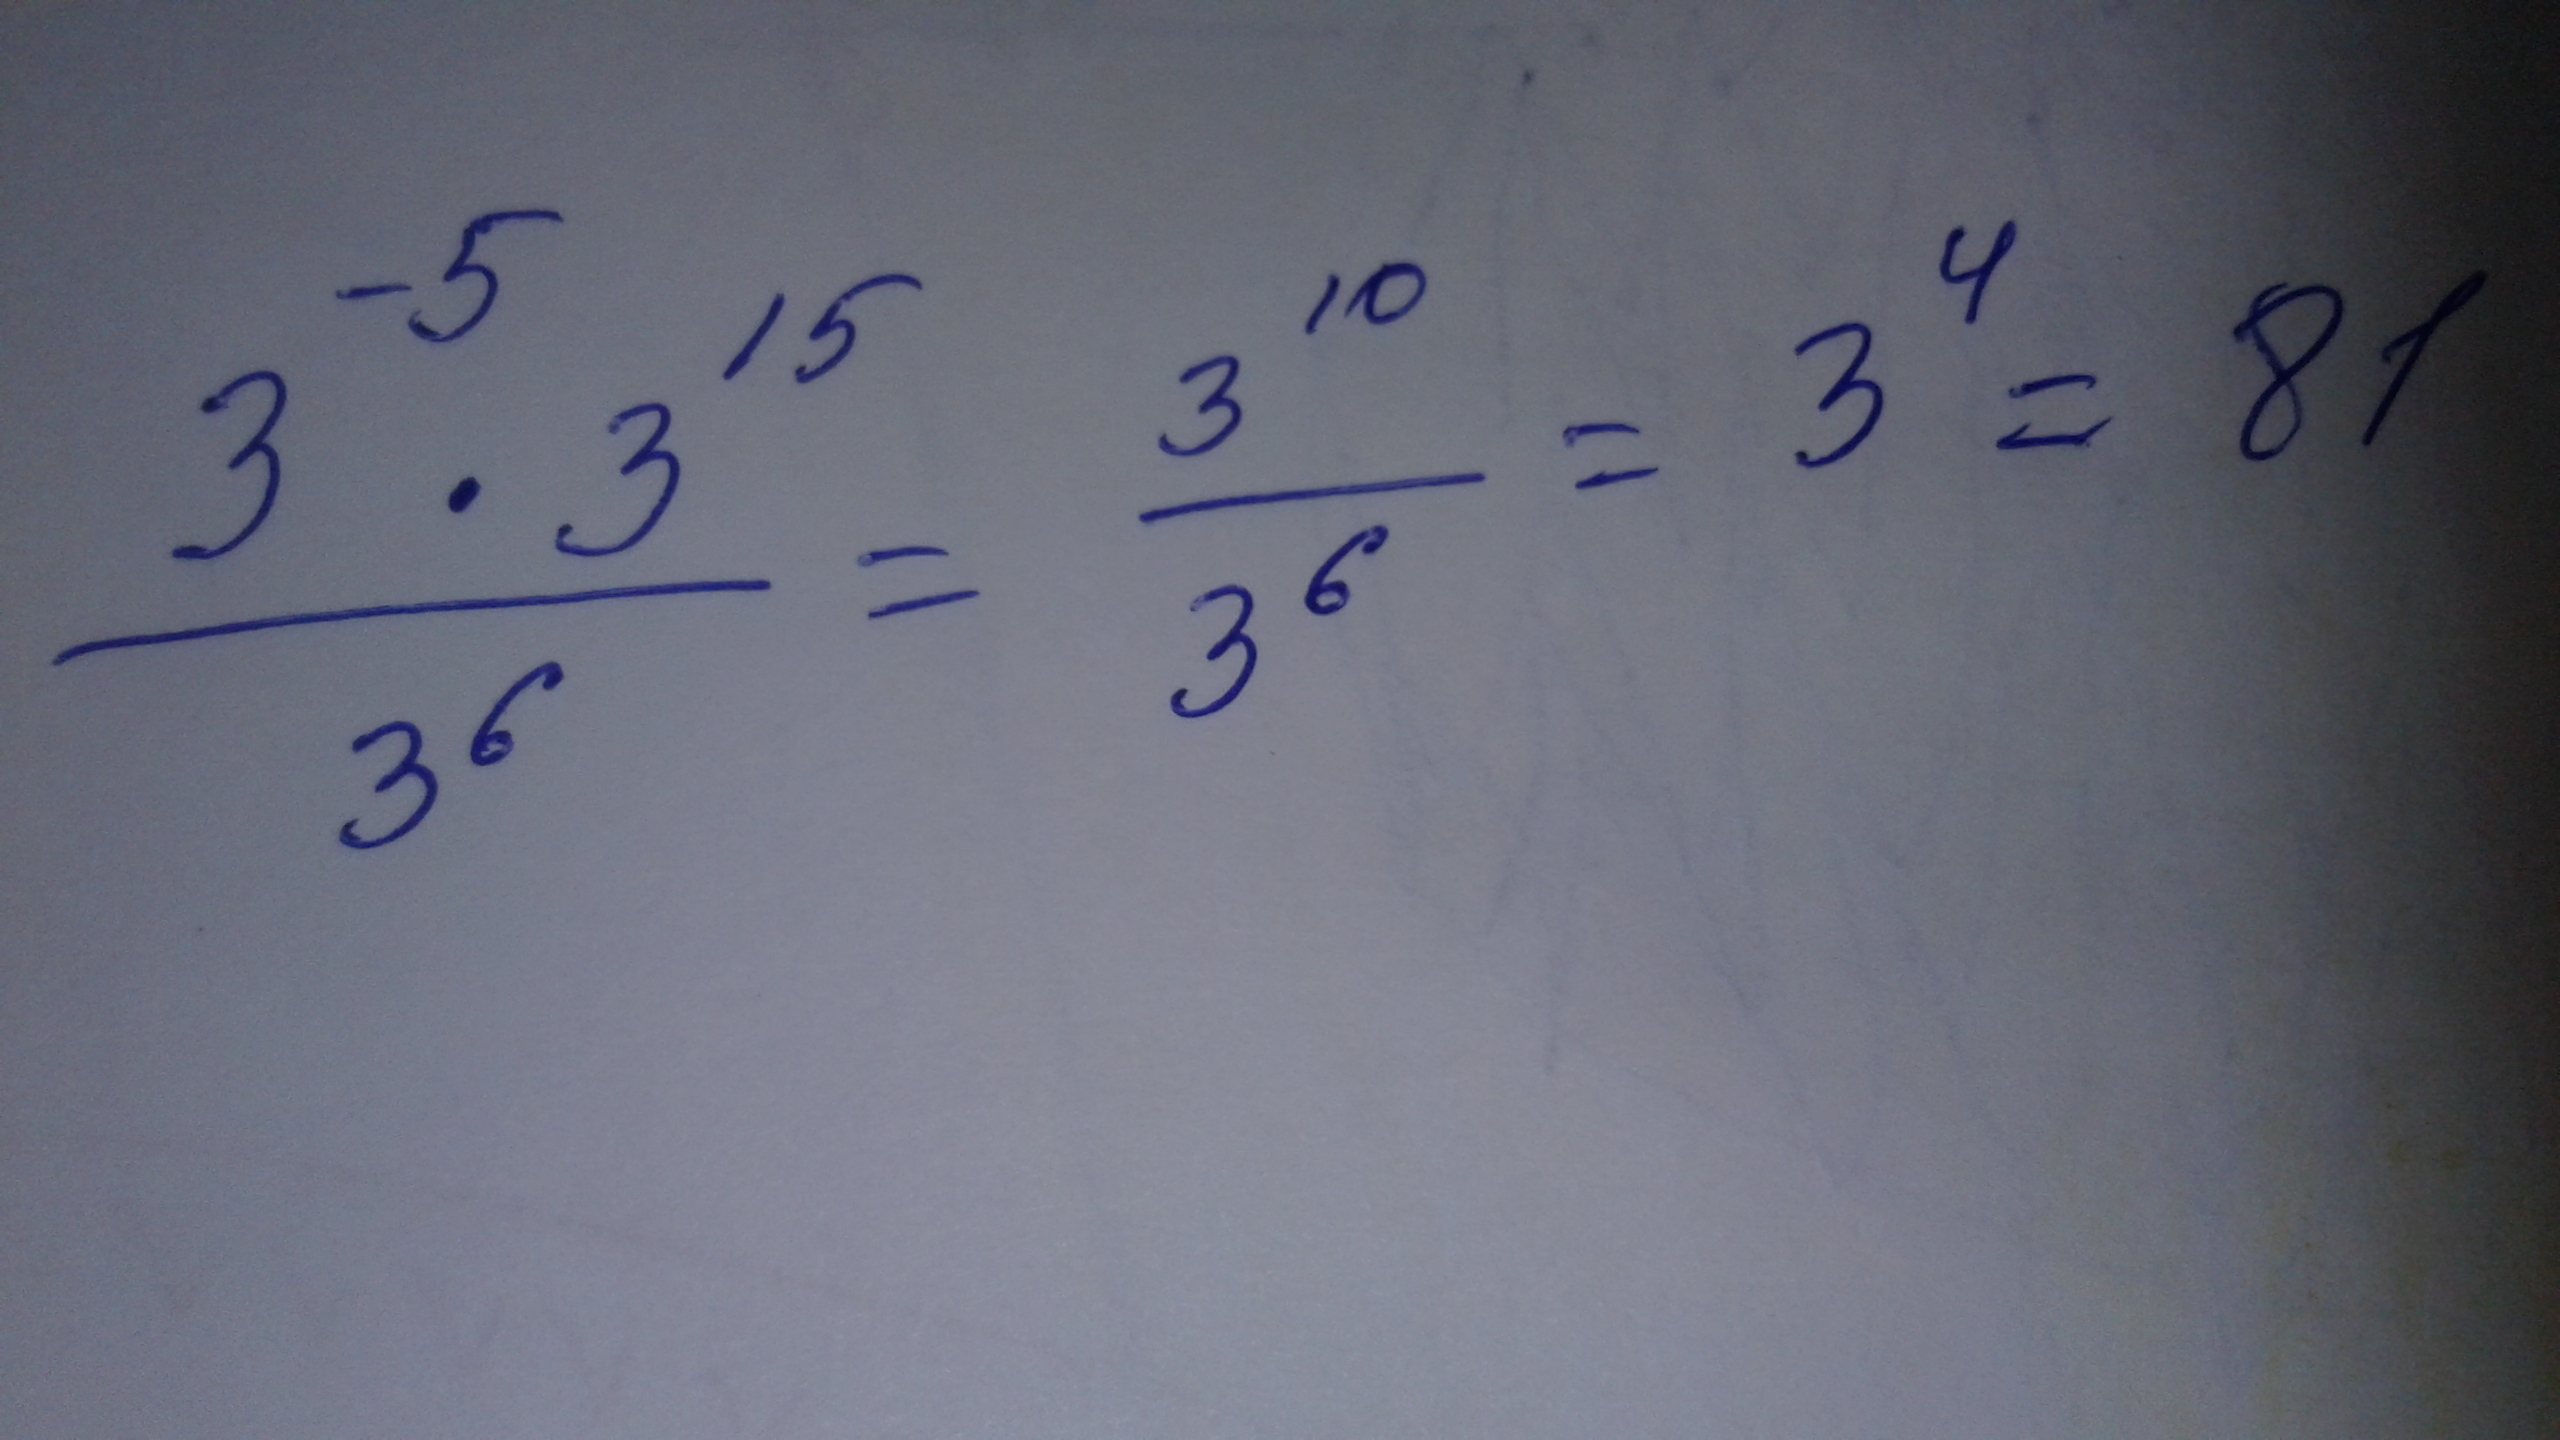 3⁻⁵ · 3¹⁵ / 3⁶ = 3¹⁰ / 3⁶ = 3⁴ = 81